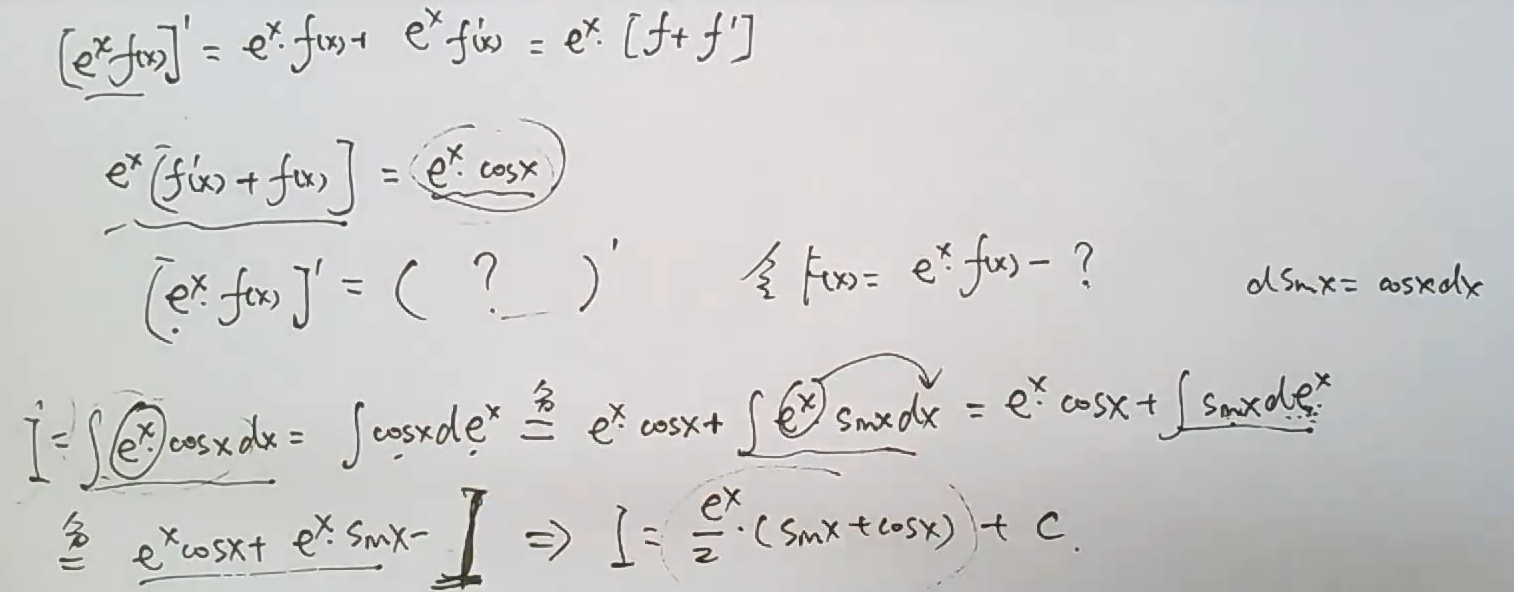 [eˣ f(x)]' = eˣ·f(x) + eˣ f'(x) = eˣ·[f + f']
eˣ[f'(x) + f(x)] = eˣ·cosx
[eˣ·f(x)]' = ( ? )' 令 F(x) = eˣ·f(x) − ? dsinx = cosxdx
I = ∫eˣ·cosxdx = ∫cosxdeˣ 分= eˣ·cosx + ∫eˣ sinxdx = eˣ·cosx + ∫sinxdeˣ
分= eˣcosx + eˣ·sinx − I ⇒ I = eˣ/2·(sinx + cosx) + C.